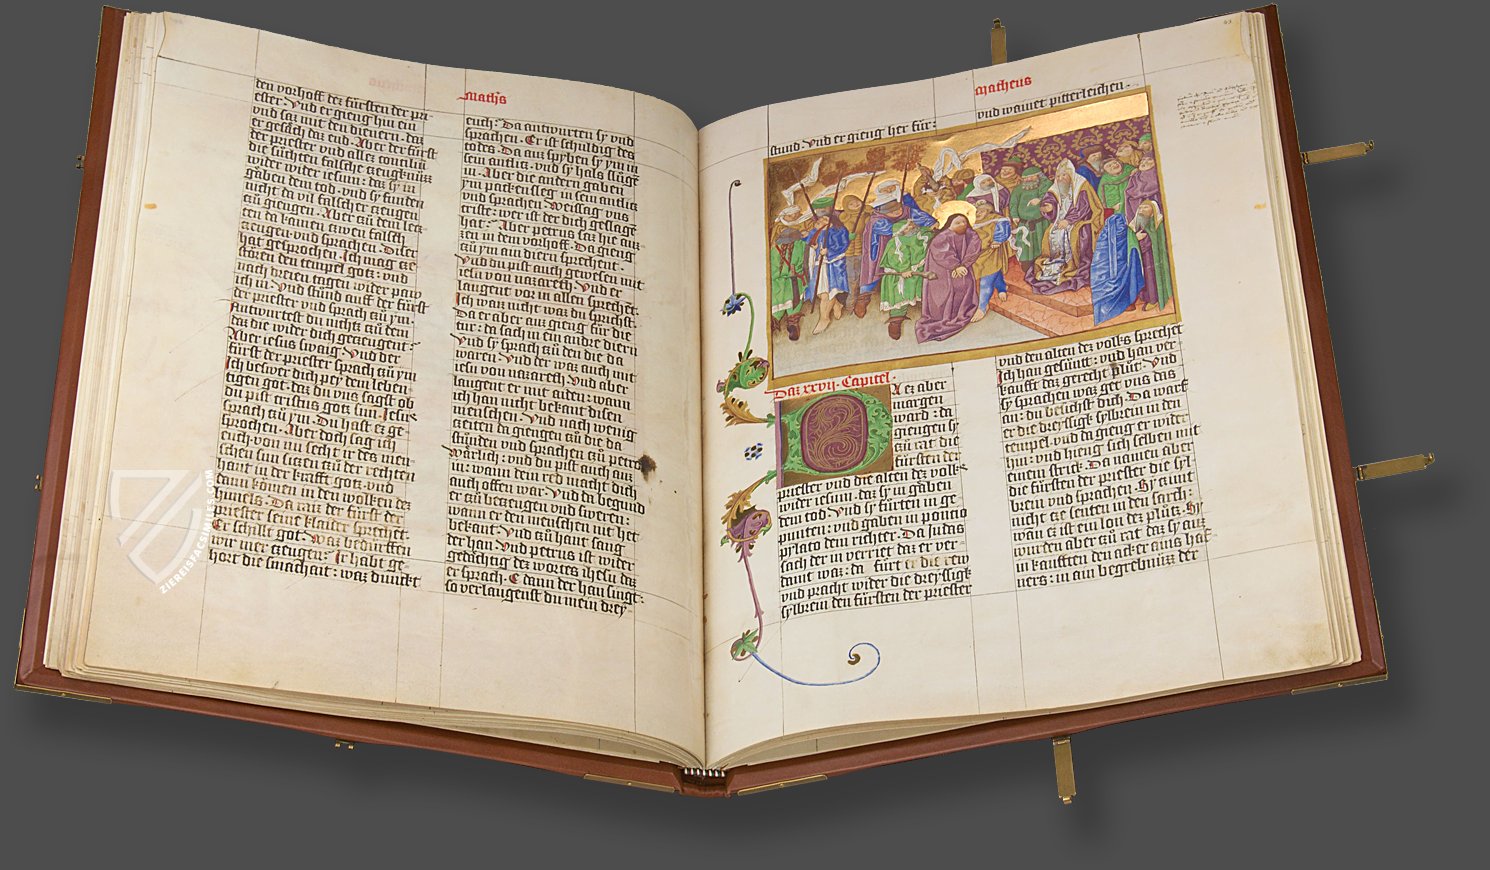 Maths
den vorhoff dez fürsten der pri-
ester. Vnd er gieng hin ein
vnd saz mit den dienern. daz
er gesäch daz end. Aber der fürst
der priester vnd allez concilium
die süchten falsche czeugknuzz
wider ihesum: daz sy in
gäben den tod. vnd sy funden
nicht do vil falscher czeugen
czü giengen. Aber czü dem lecz-
ten da kamen czwen falsch
czeugen. vnd sprachen. Diser
hat gesprochen. Ich mag cze
den tempel gotz: vnd
nach dreien tagen wider paw
ich in. Vnd stünd auff der fürst
der priester vnd sprach czü ym.
antwurtest du nichtz czü den
daz die wider dich geczeugent:
Aber ihesus swaig. Vnd der
fürst der priester sprach czü ym
Ich beswer dich pey dem leben-
tigen got. daz du vns sagst ob
du pist cristus gotz sun. Jesus
sprach czü ym. Du hast ez ge-
sprochen. Aber doch sag ich
euch. von
sehen sun siczen czü der rechten
hant in der krafft gotz. vnd
kömen in den wolken dez
himels. Da raiz der fürst der
priester seine klaider sprechet.
Er schilt got. Waz bedürffen
wir mer czeugen: Ir habt ge-
hört die smachait: waz dunckt
euch: Da antwurten sy vnd
sprachen. Er ist schuldig des
todes. Da auz spyben sy ym in
sein antlitz. vnd sy hals slüge
in. Aber die andern gaben
ym packensleg in sein antlitz
vnd sprachen. Weissag vns
criste: wer ist der dich geslage
hat: Aber petrus saz hie auz-
zen in dem vorhoff. Da gieng
czü ym ain diern sprechent.
Vnd du pist auch gewesen mit
iesu von nazareth. Vnd er
laugent vor in allen sprechet.
Ich waiz nicht waz du sprichst.
Da er aber auz gieng für die
tür: da sach in ein andre diern
vnd sy sprach czü den die da
waren. Vnd der waz auch mit
iesu von nazareth. Vnd aber
laugent er mit aiden: wann
ich han nicht bekant disen
menschen. Vnd nach wenig
zeiten da giengen czü die da
stünden vnd sprachen czü petro
wärlich: vnd du pist auch auz
in: wann dein red macht dich
auch offen war. Vnd da begund
er czü beczeugen vnd sweren:
wann er den menschen nit het
bekant. Vnd czü hant sang
der han. Vnd petrus ist wider
gedächtig dez wortes ihesu daz
er sprach. E dann der han singt:
so verlaugenst du mein drey
Matheus
stund. Vnd er gieng her für:
vnd wainet pitterleichen.
Daz xxvij. Capitel.
Da ez aber
margen
ward: da
giengen sy
in rat die
fürsten der
priester vnd die alten dez volk-
wider iesum. daz sy in gäben
dem tod. Vnd sy fürten in ge-
punten: vnd gaben in poncio
pylato dem richter. Da Judas
sach der in verriet daz er ver-
damt waz: da fürt er die rew
vnd pracht wider die dreyssigk
sylbrein den fürsten der priester
vnd den alten dez volks sprechet
Ich han gesünt: vnd han ver-
kaufft daz gerecht plut. Vnd
sy sprachen waz get vns das
an: du besichst dich. Da warf
er die sylbrein in den
tempel. vnd da gieng er wider
hin: vnd hieng sich selben mit
einem strick. Da namen aber
die fürsten der priester die syl-
brein vnd sprachen. Sy zimt
nicht cze senten in den sarch:
wan ez ist ein lon dez plütz. Sy
wurden aber czü rat daz sy auz
in kaufften den acker ains haf-
ners: in ain begrebnuzz der
ZIEREISFACSIMILES.COM